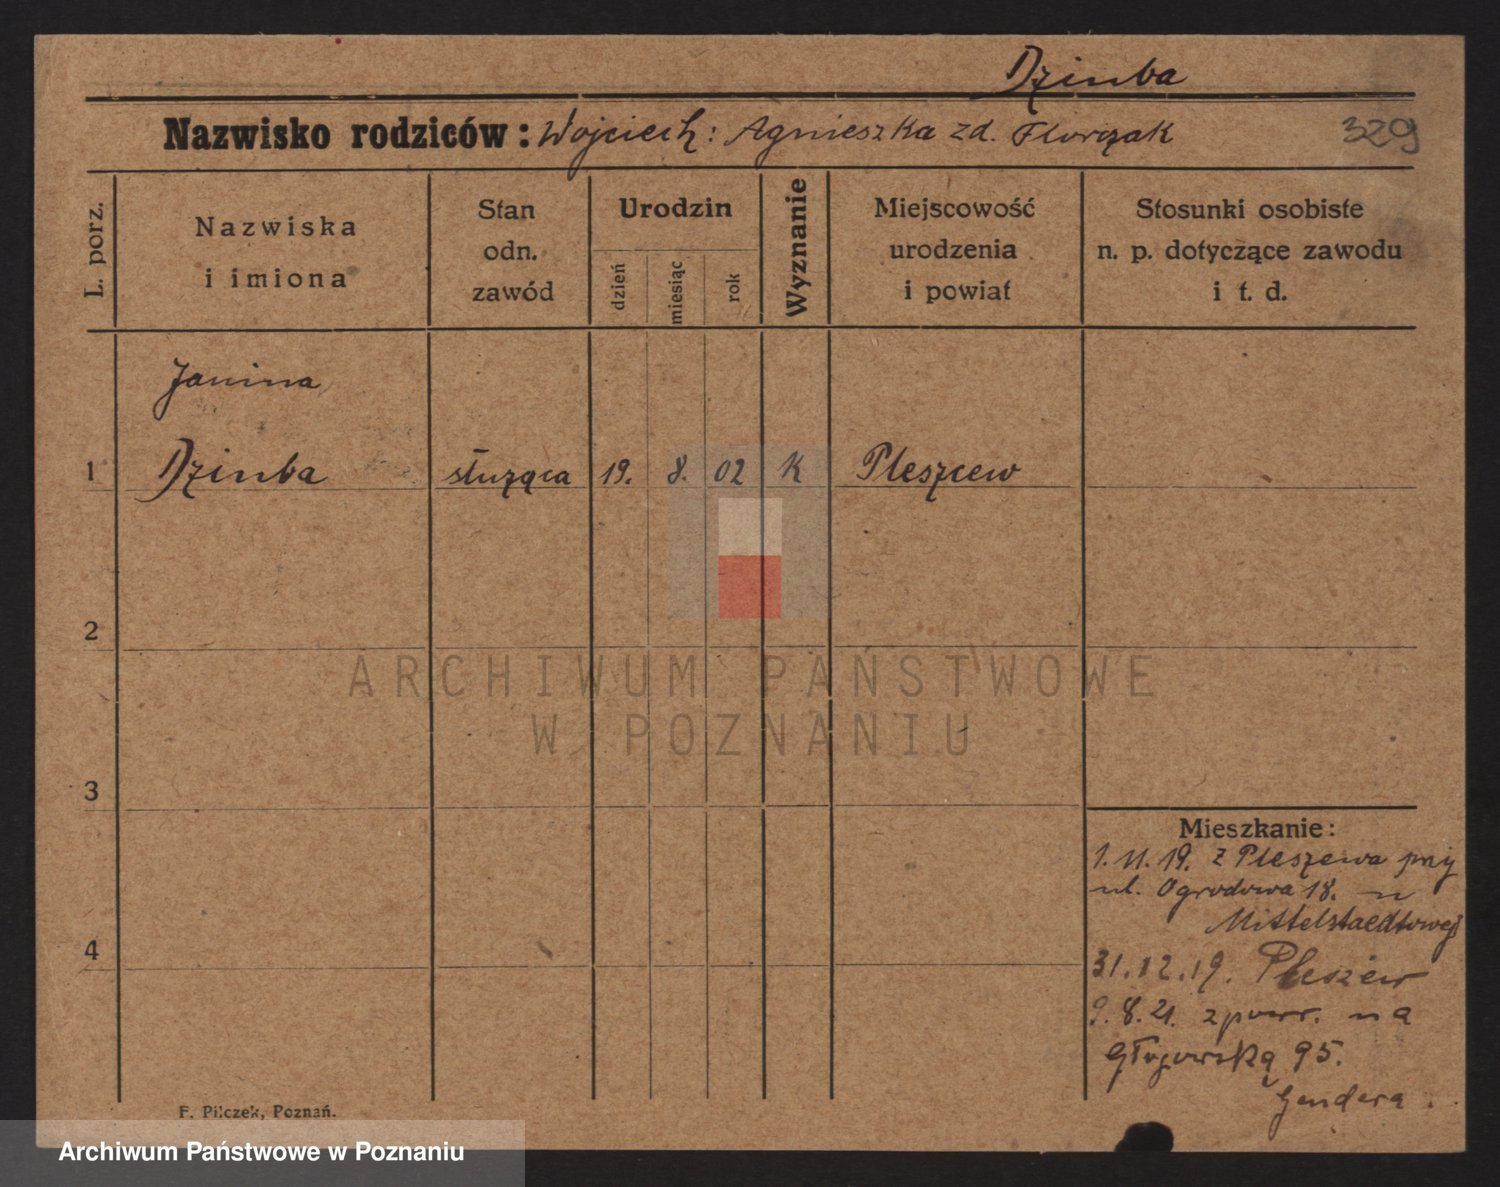 Dziuba
Nazwisko rodziców: Wojciech: Agnieszka zd. Florczak
329
L. porz.
Nazwiska
i imiona
Stan
odn.
zawód
Urodzin
dzień
miesiąc
rok
Wyznanie
Miejscowość
urodzenia
i powiat
Stosunki osobiste
n. p. dotyczące zawodu
i t. d.
Janina
1 Dziuba służąca 19. 8. 02 K Pleszew
2
ARCHIWUM PAŃSTWOWE
W POZNANIU
3
Mieszkanie:
1. 11. 19. z Pleszewa przy
ul. Ogrodowa 18. u
Mittelstaedtowej
4
31.12.19. Pleszew
9. 8. 21. z powr. na
Głogowską 95.
Gendera.
F. Pilczek, Poznań.
Archiwum Państwowe w Poznaniu